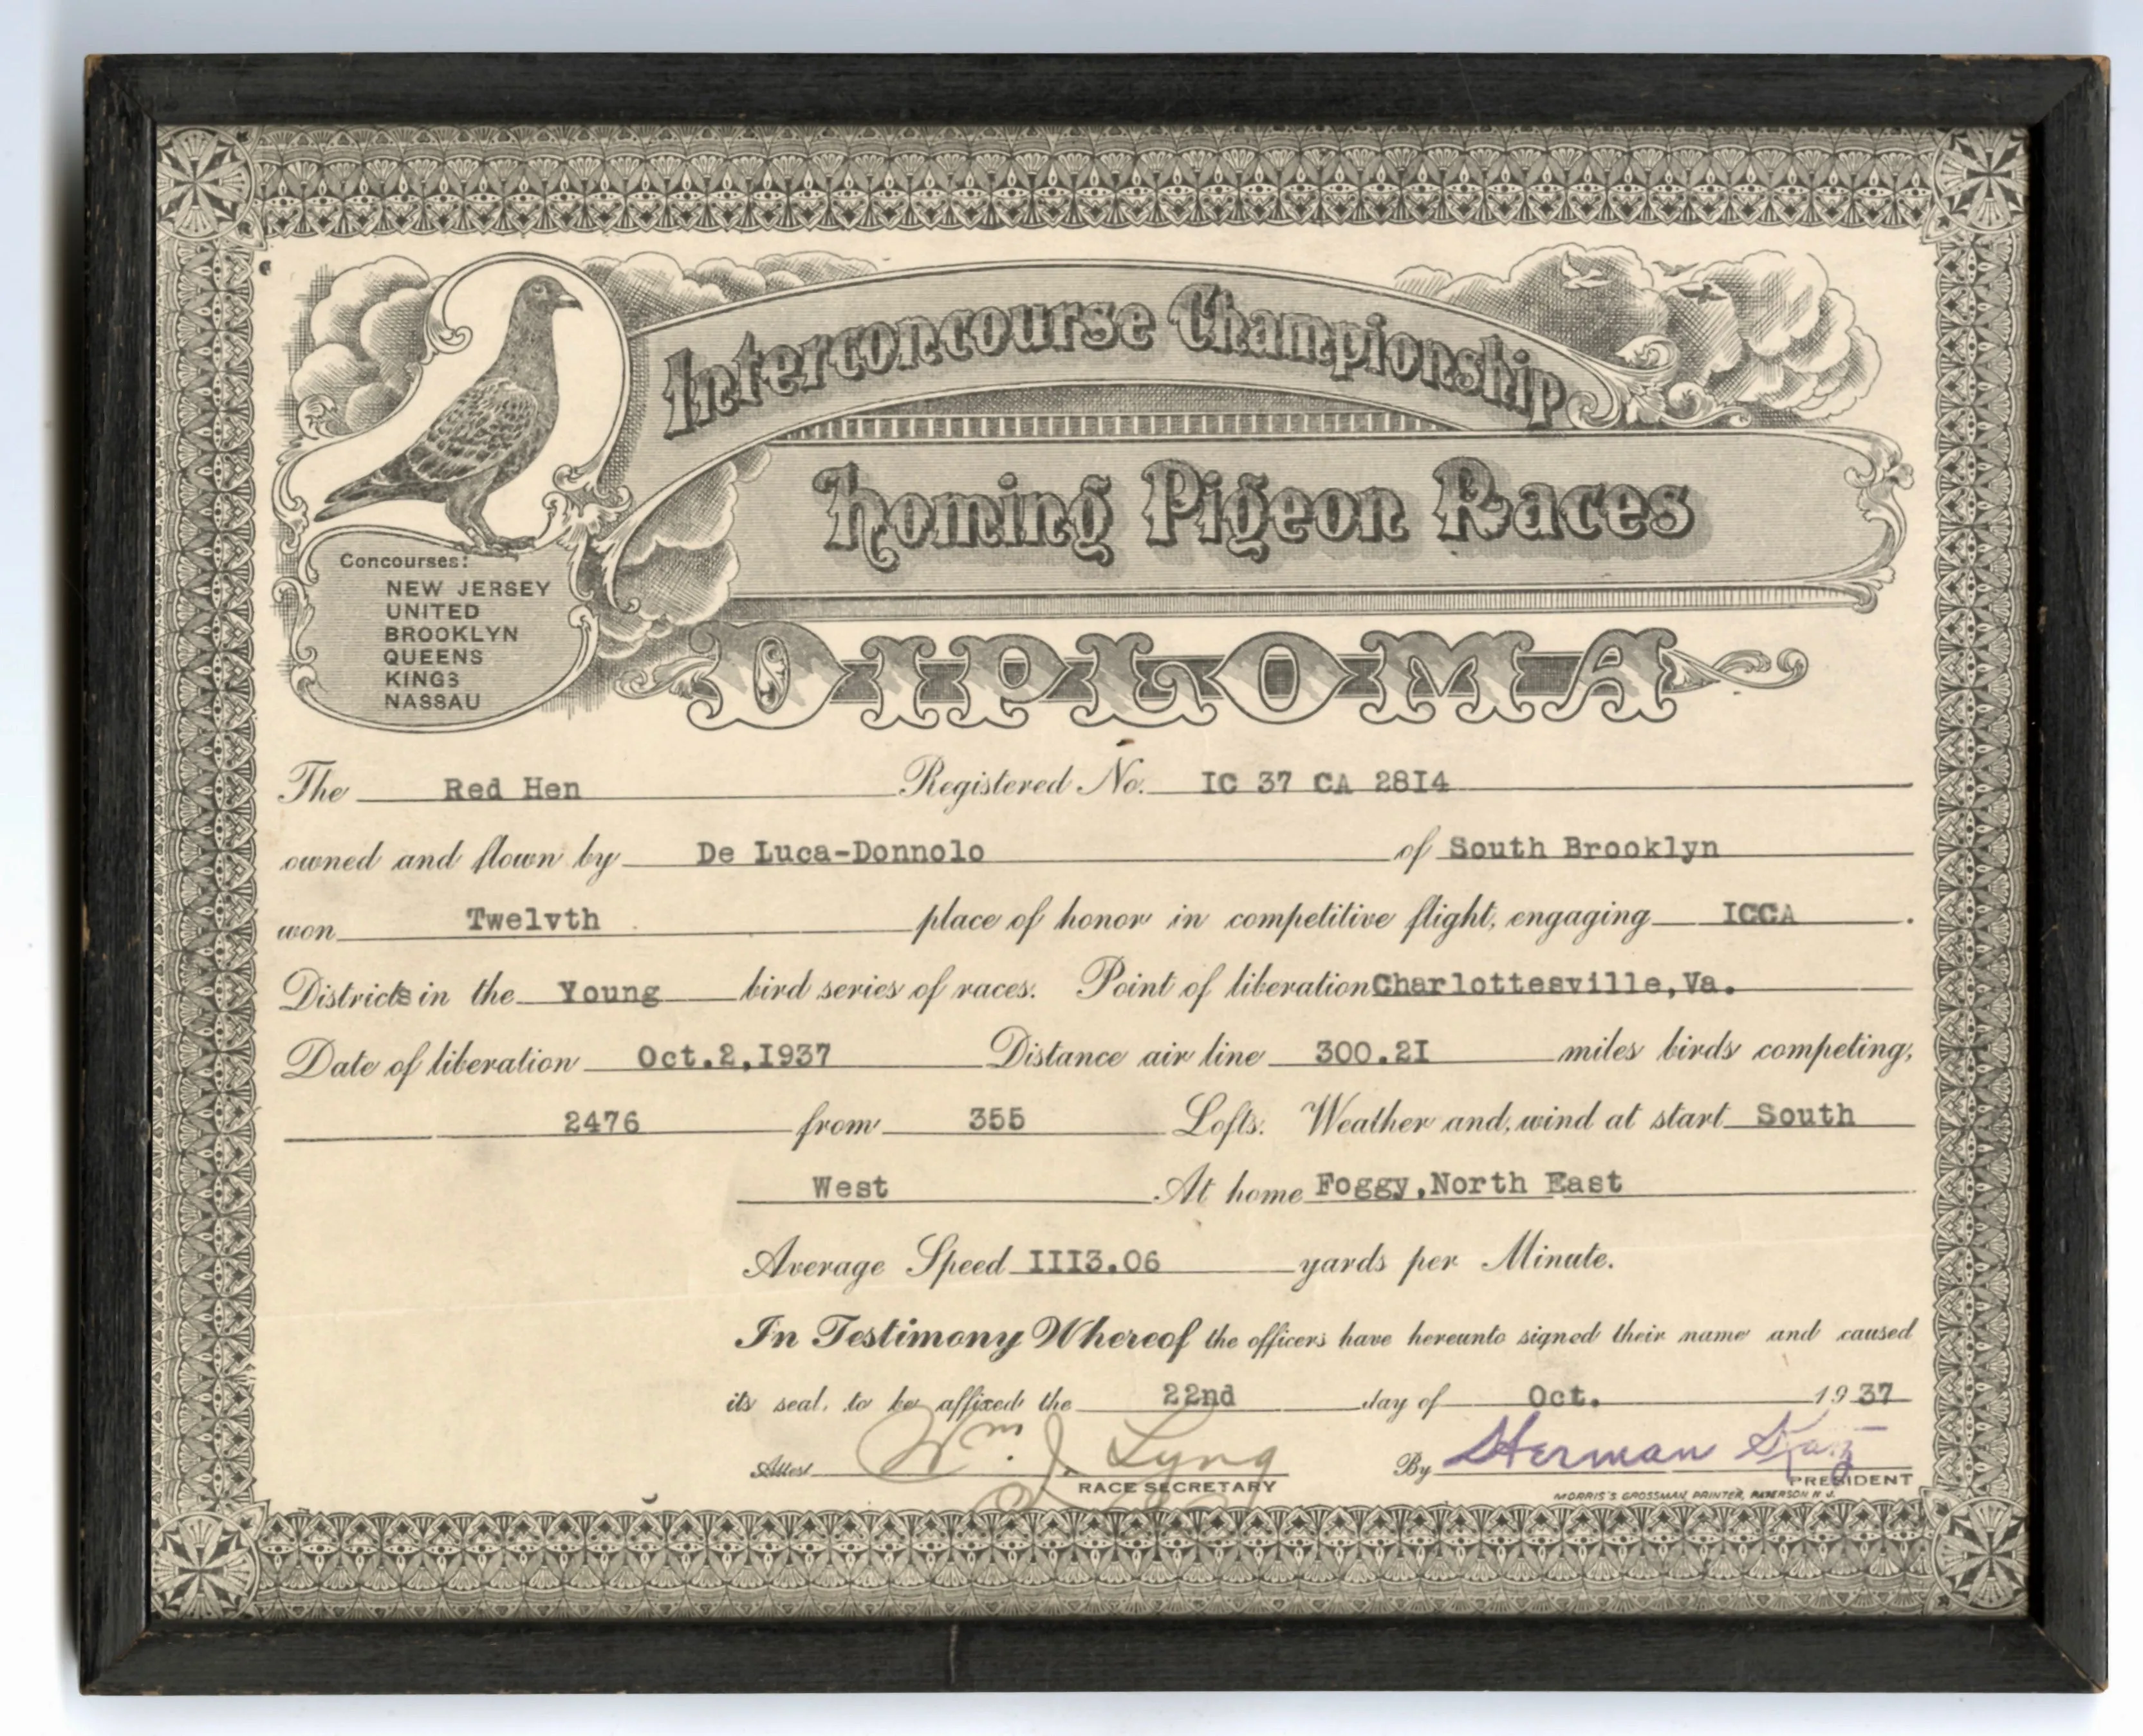 Interconcourse Championship
Homing Pigeon Races
DIPLOMA
Concourses:
NEW JERSEY
UNITED
BROOKLYN
QUEENS
KINGS
NASSAU
The Red Hen Registered No. IC 37 CA 2814
owned and flown by De Luca-Donnolo of South Brooklyn
won Twelvth place of honor in competitive flight, engaging ICCA .
Districts in the Young bird series of races. Point of liberation Charlottesville, Va.
Date of liberation Oct.2,I937 Distance air line 300.2I miles birds competing,
2476 from 355 Lofts. Weather and, wind at start South
West At home Foggy, North East
Average Speed III3.06 yards per Minute.
In Testimony Whereof the officers have hereunto signed their name and caused
its seal, to be affixed the 22nd day of Oct. 19 37
Attest Wm. J. Lyng By Herman Katz
RACE SECRETARY PRESIDENT
MORRIS S. GROSSMAN, PRINTER, PATERSON N. J.